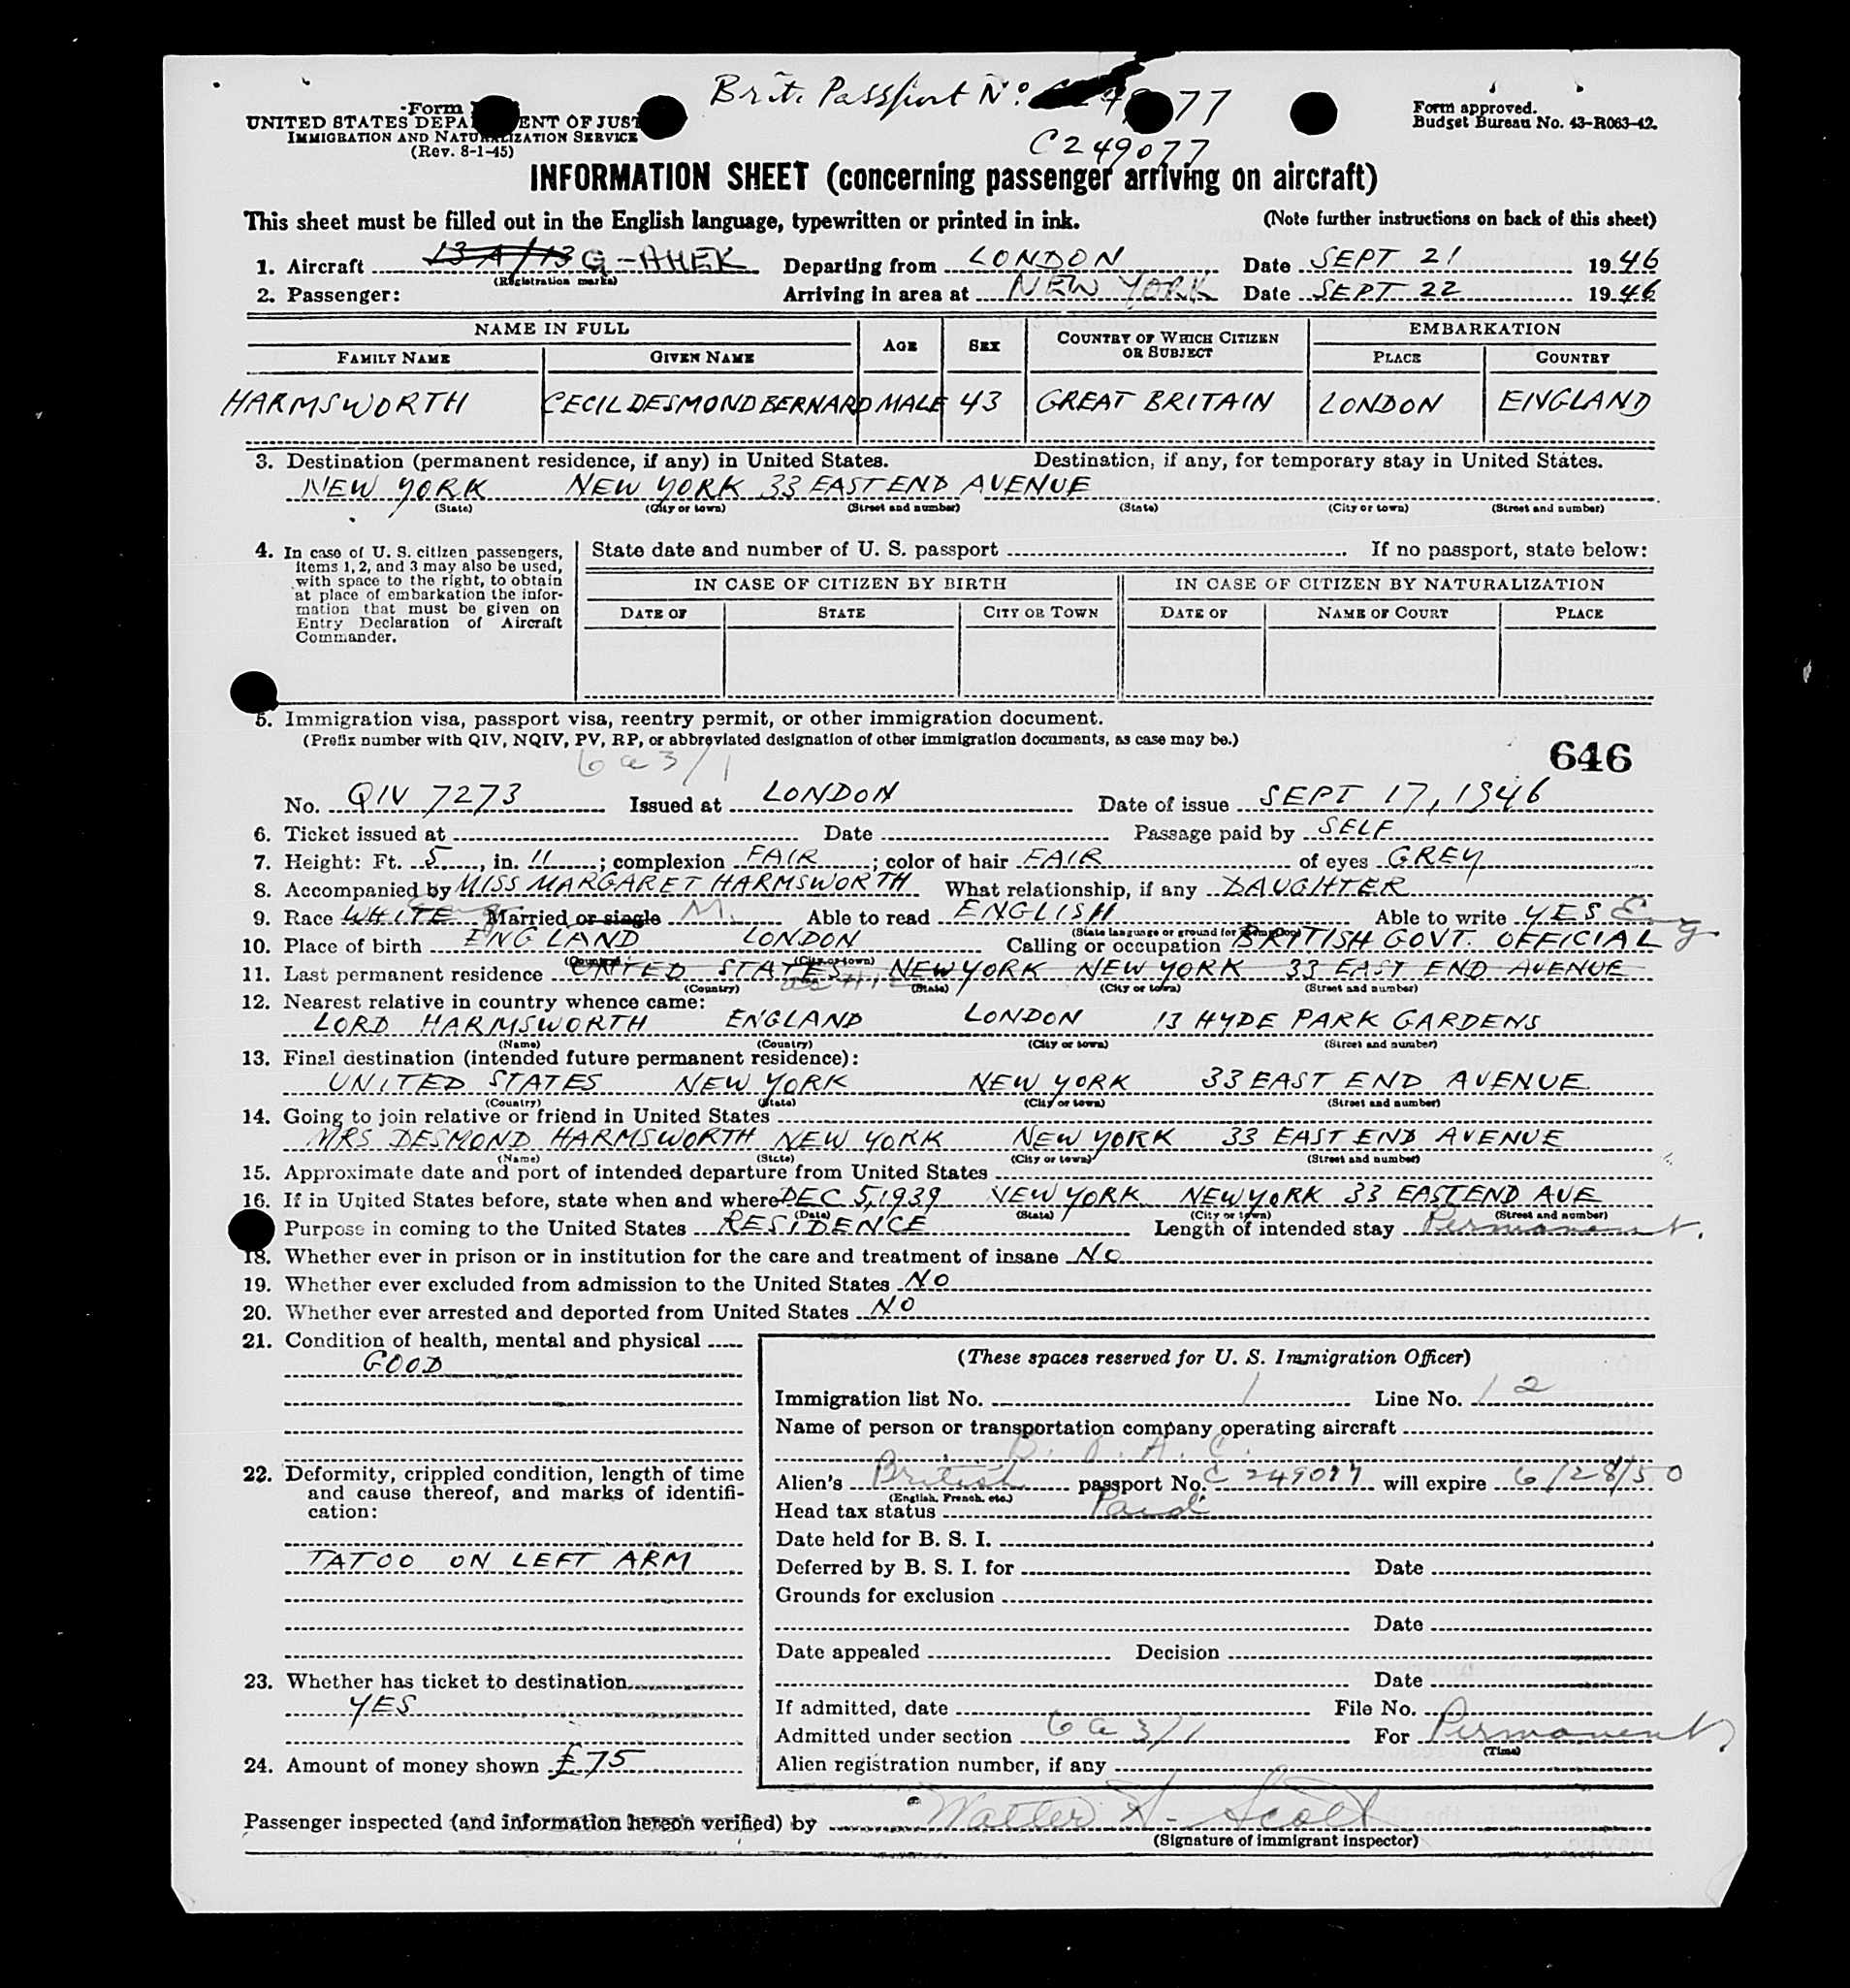 Brit. Passport No. 77
-Form
UNITED STATES DEPA ENT OF JUST
IMMIGRATION AND NATURALIZATION SERVICE
(Rev. 8-1-45)
Form approved.
Budget Bureau No. 43-R063-42.
C249077
INFORMATION SHEET (concerning passenger arriving on aircraft)
This sheet must be filled out in the English language, typewritten or printed in ink. (Note further instructions on back of this sheet)
1. Aircraft 13A/13 G-AHEK Departing from LONDON Date SEPT 21 1946
(Registration marks)
2. Passenger: Arriving in area at NEW YORK Date SEPT 22 1946
NAME IN FULL AGE SEX COUNTRY OF WHICH CITIZEN OR SUBJECT EMBARKATION
FAMILY NAME GIVEN NAME PLACE COUNTRY
HARMSWORTH CECIL DESMOND BERNARD MALE 43 GREAT BRITAIN LONDON ENGLAND
3. Destination (permanent residence, if any) in United States. Destination, if any, for temporary stay in United States.
NEW YORK NEW YORK 33 EAST END AVENUE
(State) (City or town) (Street and number) (State) (City or town) (Street and number)
4. In case of U. S. citizen passengers,
items 1, 2, and 3 may also be used,
with space to the right, to obtain
at place of embarkation the infor-
mation that must be given on
Entry Declaration of Aircraft
Commander.
State date and number of U. S. passport If no passport, state below:
IN CASE OF CITIZEN BY BIRTH IN CASE OF CITIZEN BY NATURALIZATION
DATE OF STATE CITY OR TOWN DATE OF NAME OF COURT PLACE
5. Immigration visa, passport visa, reentry permit, or other immigration document.
(Prefix number with QIV, NQIV, PV, RP, or abbreviated designation of other immigration documents, as case may be.)
6a3/1
646
No. QIV 7273 Issued at LONDON Date of issue SEPT 17, 1946
6. Ticket issued at Date Passage paid by SELF
7. Height: Ft. 5, in. 11; complexion FAIR; color of hair FAIR of eyes GREY
8. Accompanied by MISS MARGARET HARMSWORTH What relationship, if any DAUGHTER
9. Race WHITE Married or single M. Able to read ENGLISH Able to write YES Eng
(State language or ground for exemption)
10. Place of birth ENGLAND LONDON Calling or occupation BRITISH GOVT. OFFICIAL
(Country) (City or town)
11. Last permanent residence UNITED STATES NEW YORK NEW YORK 33 EAST END AVENUE
(Country) (State) (City or town) (Street and number)
12. Nearest relative in country whence came:
LORD HARMSWORTH ENGLAND LONDON 13 HYDE PARK GARDENS
(Name) (Country) (City or town) (Street and number)
13. Final destination (intended future permanent residence):
UNITED STATES NEW YORK NEW YORK 33 EAST END AVENUE
(Country) (State) (City or town) (Street and number)
14. Going to join relative or friend in United States
MRS DESMOND HARMSWORTH NEW YORK NEW YORK 33 EAST END AVENUE
(Name) (State) (City or town) (Street and number)
15. Approximate date and port of intended departure from United States
16. If in United States before, state when and where DEC 5, 1939 NEW YORK NEW YORK 33 EAST END AVE
(Date) (State) (City or town) (Street and number)
Purpose in coming to the United States RESIDENCE Length of intended stay Permanent.
18. Whether ever in prison or in institution for the care and treatment of insane NO
19. Whether ever excluded from admission to the United States NO
20. Whether ever arrested and deported from United States NO
21. Condition of health, mental and physical
GOOD
22. Deformity, crippled condition, length of time
and cause thereof, and marks of identifi-
cation:
TATOO ON LEFT ARM
23. Whether has ticket to destination
YES
24. Amount of money shown £75
(These spaces reserved for U. S. Immigration Officer)
Immigration list No. 1 Line No. 12
Name of person or transportation company operating aircraft
B. O. A. C.
Alien's British passport No. C 249077 will expire 6/28/50
(English, French, etc.)
Head tax status Paid
Date held for B. S. I.
Deferred by B. S. I. for Date
Grounds for exclusion
Date
Date appealed Decision
Date
If admitted, date File No.
Admitted under section 6a3/1 For Permanent
(Time)
Alien registration number, if any
Passenger inspected (and information hereon verified) by Walter A. Scott
(Signature of immigrant inspector)